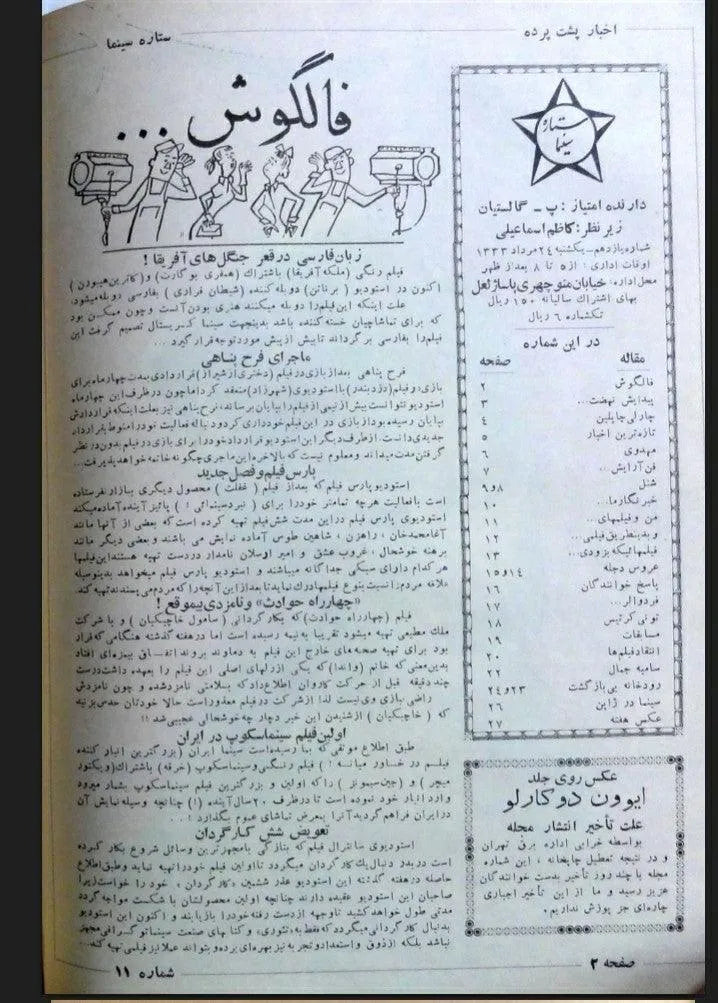 اخبار پشت پرده
ستاره سینما
ستاره
سینما
دارنده امتیاز : پ - گالستیان
زیر نظر : کاظم اسماعیلی
شماره یازدهم - یکشنبه ۲۴ مرداد ۱۳۳۳
اوقات اداری : از ه تا ۸ بعداز ظهر
محل اداره : خیابان منوچهری پاساژ لعل
بهای اشتراک سالیانه ۱۵۰ ریال
تکشماره ۶ ریال
در این شماره
مقاله صفحه
فالگوش ۲
پیدایش نهضت... ۳
چارلی چاپلین ۴
تازه ترین اخبار ۵
مهدوی ۶
فن آرایش... ۷
شنل ۸و۹
خبرنگارما... ۱۰
من و فیلمهای... ۱۱
و بدینطریق فیلمی... ۱۲
فیلمهائیکه بزودی... ۱۳
عروس دجله ۱۴و۱۵
پاسخ خوانندگان ۱۶
فردوالر... ۱۷
تونی کرتیس ۱۸
مسابقات ۱۹
انتقاد فیلم‌ها ۲۰
سامیه جمال ۲۲
رودخانه بی‌بازگشت ۲۳و۲۴
سینما در ژاپن ۲۶
عکس هفته ۲۷
عکس روی جلد
ایوون دوکارلو
علت تأخیر انتشار مجله
بواسطه خرابی اداره برق تهران
و در نتیجه تعطیل چاپخانه ، این شماره
مجله با چند روز تأخیر بدست خوانندگان
عزیز رسید و ما از این تأخیر اجباری
چاره‌ای جز پوزش نداریم.
فالگوش ...
زبان فارسی در قعر جنگل های آفریقا !
فیلم رنگی (ملکه آفریقا) باشتراک (همفری بوگارت) و (کاترین هیبورن)
اکنون در استودیو ( برناتن) دوبله کننده (شیطان فراری) بفارسی دوبله میشود.
علت اینکه این فیلم را دوبله میکنند هنری بودن آنست و چون ممکن بود
که برای تماشاچیان خسته کننده باشد بدینجهت سینما کریستال تصمیم گرفت این
فیلم را بفارسی بر گرداند تا بیش از پیش مورد توجه قرار گیرد ...
ماجرای فرح پناهی
فرح پناهی بعداز بازی در فیلم (دختری از شیراز) قراردادی بمدت چهارماه برای
بازی در فیلم (دزد بندر) با استودیوی (شهرزاد) منعقد کرد اما چون در ظرف این چهارماه
استودیو نتوانست بیش از نیمی از فیلم را بپایان برساند، فرح پناهی نیز بعلت اینکه قراردادش
بپایان رسیده بود از بازی در این فیلم خودداری کرد و دنباله فعالیت خود را منوط بقرارداد
جدیدی دانست. از طرف دیگر این استودیو قرارداد خود را برای بازی در فیلم بدون در نظر
گرفتن مدت میداند و معلوم نیست که بالاخره این ماجری چگونه خاتمه خواهد پذیرفت...
پارس فیلم و فصل جدید
استودیو پارس فیلم که بعداز فیلم ( غفلت ) محصول دیگری ببازار نفرستاده
است با فعالیت هر چه تمامتر خود را برای ( نبرد سینمائی ! ) پائیز آینده آماده میکند
استودیوی پارس فیلم در این مدت شش فیلم تهیه کرده است که بعضی از آنها مانند
آغامحمدخان ، راهزن ، شاهین طوس آماده نمایش می باشند و بعضی دیگر مانند
برهنه خوشحال ، غروب عشق و امیر ارسلان نامدار در دست تهیه هستند این فیلمها
هر کدام دارای سبکی جداگانه میباشند و استودیو پارس فیلم میخواهد بدینوسیله
علاقه مردم را نسبت بنوع فیلمها درک نماید تا بعد از این آنچه را که مردم می پسندند تهیه کند.
«چهارراه حوادث» و نامزدی بیموقع !
فیلم (چهارراه حوادث) که بکارگردانی (ساموئل خاچیکیان ) و با شرکت
ملک مطیعی تهیه میشود تقریبا به نیمه رسیده است اما در هفته گذشته هنگامی که قرار
بود برای تهیه صحنه‌های خارج این فیلم به دماوند بروند اتفاق بیمزه‌ای افتاد
بدین معنی که خانم (واندا) که یکی از رلهای اصلی این فیلم را بعهده داشت درست
چند دقیقه قبل از حرکت کاروان اطلاع داد که بسلامتی نامزد شده و چون نامزدش
راضی ببازی وی نیست لذا از شرکت در فیلم معذور است حالا خودتان حدس بزنید
که ( خاچیکیان ) از شنیدن این خبر دچار چه خوشحالی عجیبی شد !!
اولین فیلم سینماسکوپ در ایران
طبق اطلاع موثقی که بما رسیده است سینما ایران (بزرگترین انبار کننده
فیلم در خاور میانه ! ) فیلم رنگی و سینماسکوپ (خرقه) باشتراک (ویکتور
میچر ) و (جین سیمونز ) را که اولین و بزرگترین فیلم سینماسکوپ بشمار میرود
وارد انبار خود نموده است تا در ظرف ۲۰ سال آینده (!) چنانچه وسیله نمایش آن
در ایران فراهم گردید آنرا بمعرض تماشای عموم بگذارد ! . .
تعویض شش کارگردان
استودیوی سانترال فیلم که بتازگی با مجهزترین وسائل شروع بکار کرده
است در بدر دنبال یک کارگردان میگردد تا اولین فیلم خود را تهیه نماید و طبق اطلاع
حاصله در هفته گذشته این استودیو عذر ششمین «کارگردان » خود را خواست زیرا
صاحبان این استودیو عقیده دارند چنانچه اولین محصولشان با شکست مواجه گردد
مدتی طول خواهد کشید تا وجهه از دست رفته خود را بازیابند و اکنون این استودیو
بدنبال کارگردانی میگردد که فقط به «تئوری» و کتابهای صنعت سینماتوگرافی مجهز
نباشد بلکه از ذوق و استعداد و تجربه نیز بهره‌ای برده و بتواند عملا نیز فیلمی تهیه کند...
صفحه ۲
شماره ۱۱